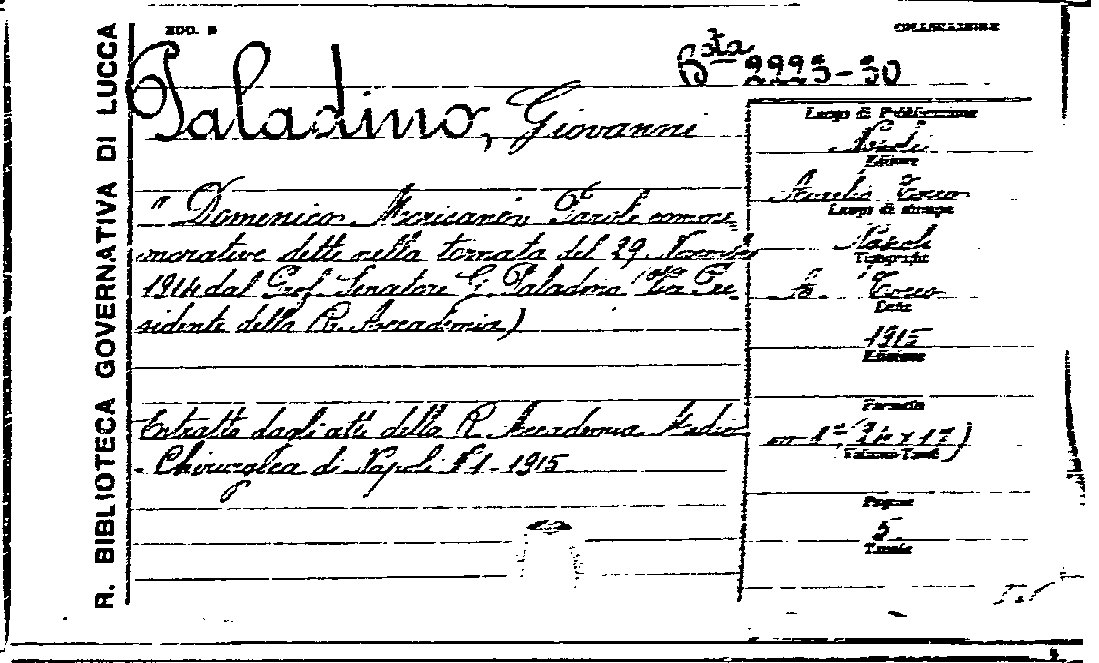 R. BIBLIOTECA GOVERNATIVA DI LUCCA
MOD. B
COLLOCAZIONE
Bsta 2225-30
Paladino, Giovanni
" Domenico Parole comme=
morative dette nella tornata del 29. Novembre
1914 dal Prof. Senatore G. Paladino Pre-
sidente della R. Accademia)
Estratto dagli atti della R. Accademia Medico
- Chirurgica di Napoli N 1 - 1915
Luogo di Pubblicazione
Napoli
Editore
Aurelio Tocco
Luogo di stampa
Napoli
Tipografia
A. Tocco
Data
1915
Edizione
Formato
in
Volume Tomi
Pagine
5
Tavole